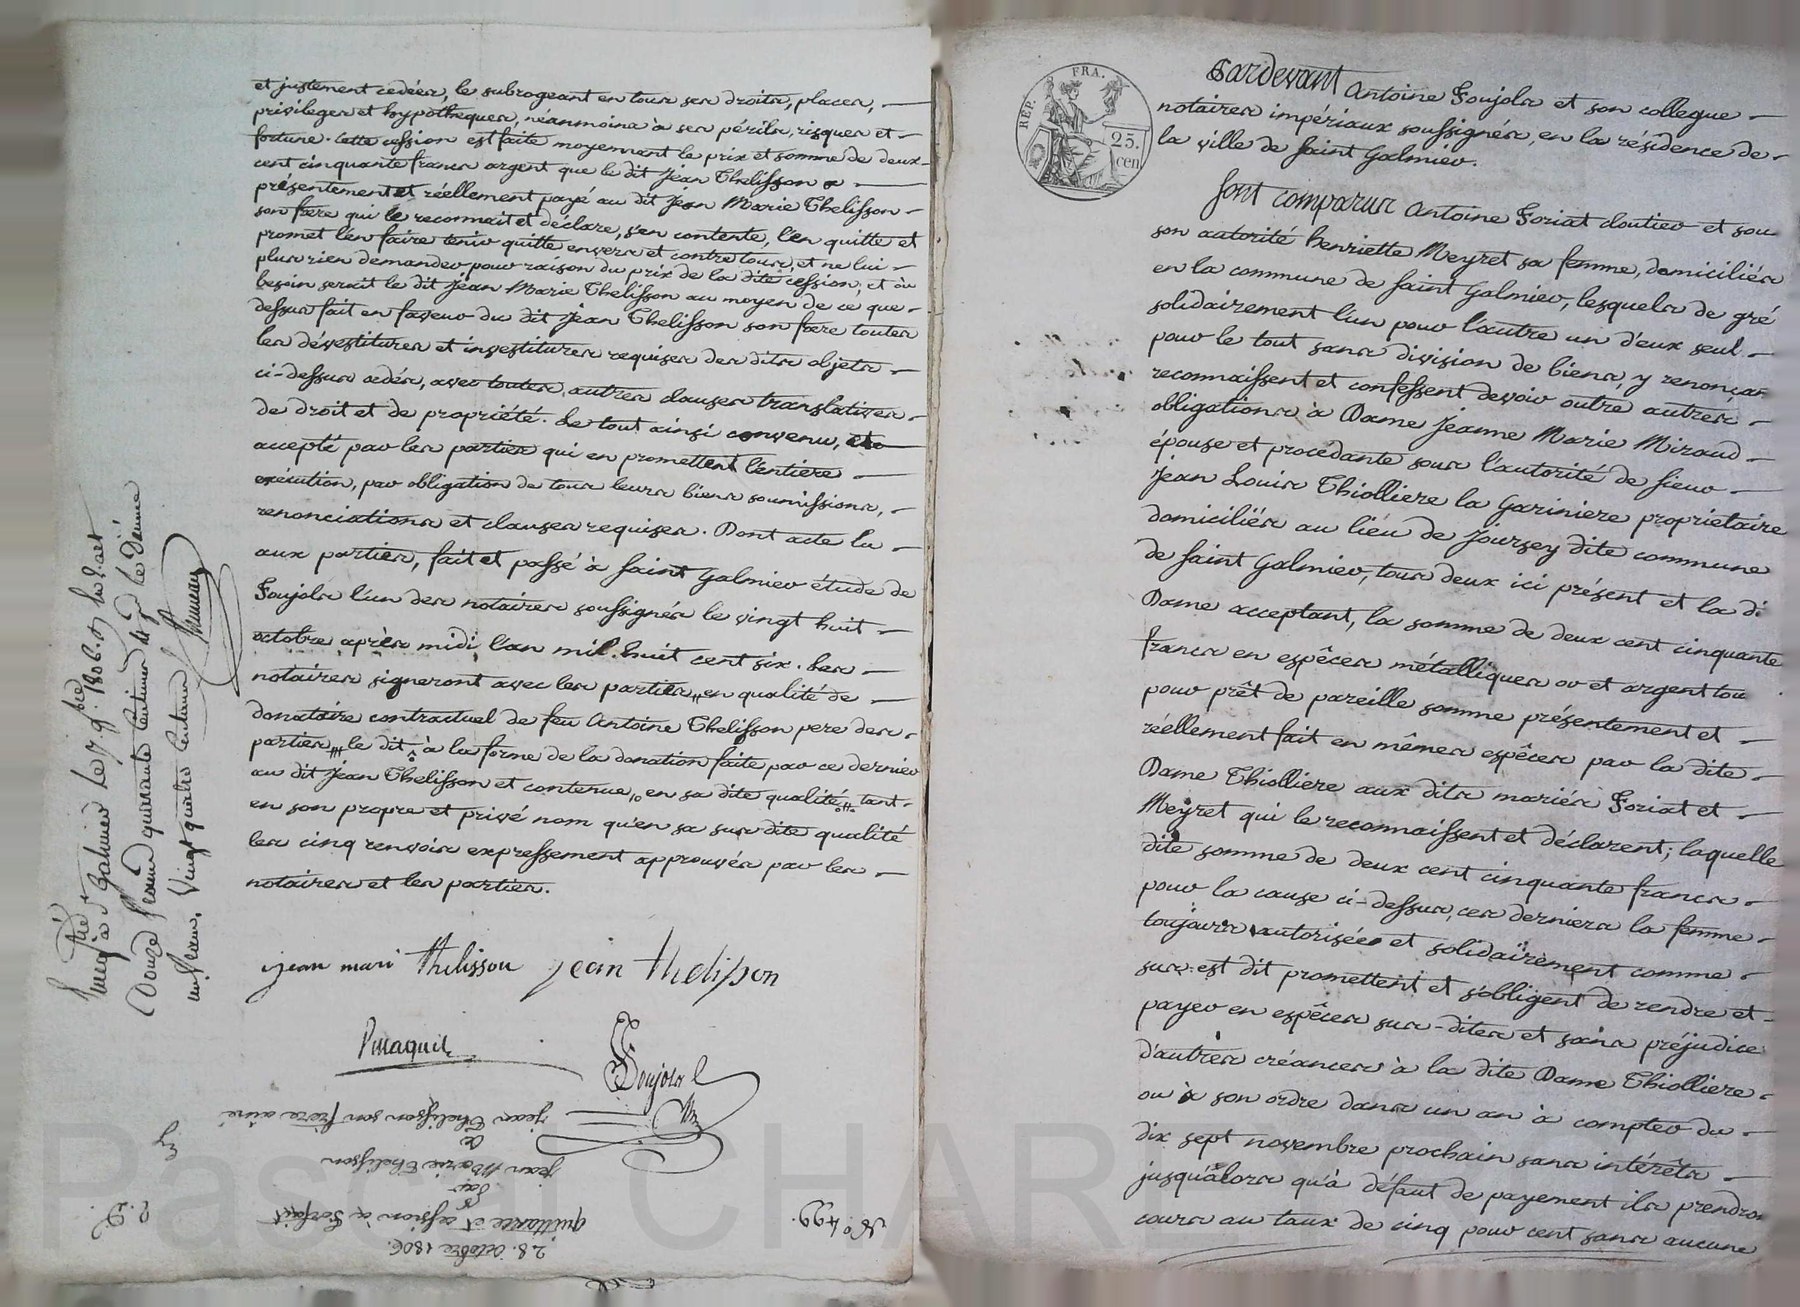 et justement cédées, le subrogeant en tous ses droits, places,
privileges et hypotheques, neanmoins à ses périls, risques et
fortune. Cette cession est faite moyennant le prix et somme de deux
cent cinquante francs argent que le dit Jean Thelisson a
présentement et réellement payé au dit Jean Marie Thelisson
son frere qui le reconnait et déclare, s'en contente, l'en quitte et
promet l'en faire tenir quitte envers et contre tous, et ne lui
plus rien demander pour raison du prix de la dite cession, et où
besoin serait le dit Jean Marie Thelisson au moyen de ce que
dessus fait en faveur du dit Jean Thelisson son frere toutes
les dévestitures et investitures requises des dits objets
ci-dessus cédés, avec toutes autres clauses translatives
de droit et de propriété. Le tout ainsi convenu,
accepté par les parties qui en promettent l'entiere
exécution, par obligation de tous leurs biens soumissions,
renonciations et clauses requises. Dont acte lu
aux parties, fait et passé à Saint Galmier étude de
Soujols l'un des notaires soussignés le vingt huit
octobre après midi, l'an mil huit cent six. Les
notaires signeront avec les parties, en qualité de
donataire contractuel de feu Antoine Thelisson pere des
parties, le dit, à la forme de la donation faite par ce dernier
au dit Jean Thelisson et contenue, en sa dite qualité, tant
en son propre et privé nom qu'en sa sus dite qualité
les cinq renvois expressement approuvés par les
notaires et les parties.
jean mari thelisson jean thelisson
Pmaquil
Soujols
à St Galmier le 7 9bre 1806
Douze francs quarante centimes
Vingt quatre centimes
28. Octobre 1806.
quittance et cession à forfait
par
Jean Marie Thelisson
à
Jean Thelisson son frere ainé
N.o 499.
Pardevant Antoine Soujols et son collegue
notaires impériaux soussignés, en la résidence de
la ville de Saint Galmier.
REP. FRA.
25.
cen
Sont comparus Antoine Foriat cloutier et sous
son autorité henriette Meyret sa femme, domiciliés
en la commune de Saint Galmier, lesquels de gré
solidairement l'un pour l'autre un d'eux seul
pour le tout sans division de biens, y renonçan
reconnaissent et confessent devoir outre autres
obligations à Dame Jeanne Marie Miraud
épouse et procédante sous l'autorité de sieur
Jean Louis Thiolliere la Gariniere propriétaire
domiciliés au lieu de Joursey dite commune
de Saint Galmier, tous deux ici présent et la di
Dame acceptant, la somme de deux cent cinquante
francs en espêces métalliques or et argent tou
pour prêt de pareille somme présentement et
réellement fait en mêmes espêces par la dite
Dame Thiolliere aux dits mariés Foriat et
Meyret qui le reconnaissent et déclarent; laquelle
dite somme de deux cent cinquante francs
pour la cause ci-dessus, ces derniers la femme
toujours autorisée et solidairement comme
sus est dit promettent et s'obligent de rendre et
payer en espêces sus-dites et sans préjudice
d'autres créances à la dite Dame Thiolliere
ou à son ordre dans un an à compter du
dix sept novembre prochain sans intérêts
jusqu'alors qu'à défaut de payement ils prendron
cours au taux de cinq pour cent sans aucune
Pascal CHAR